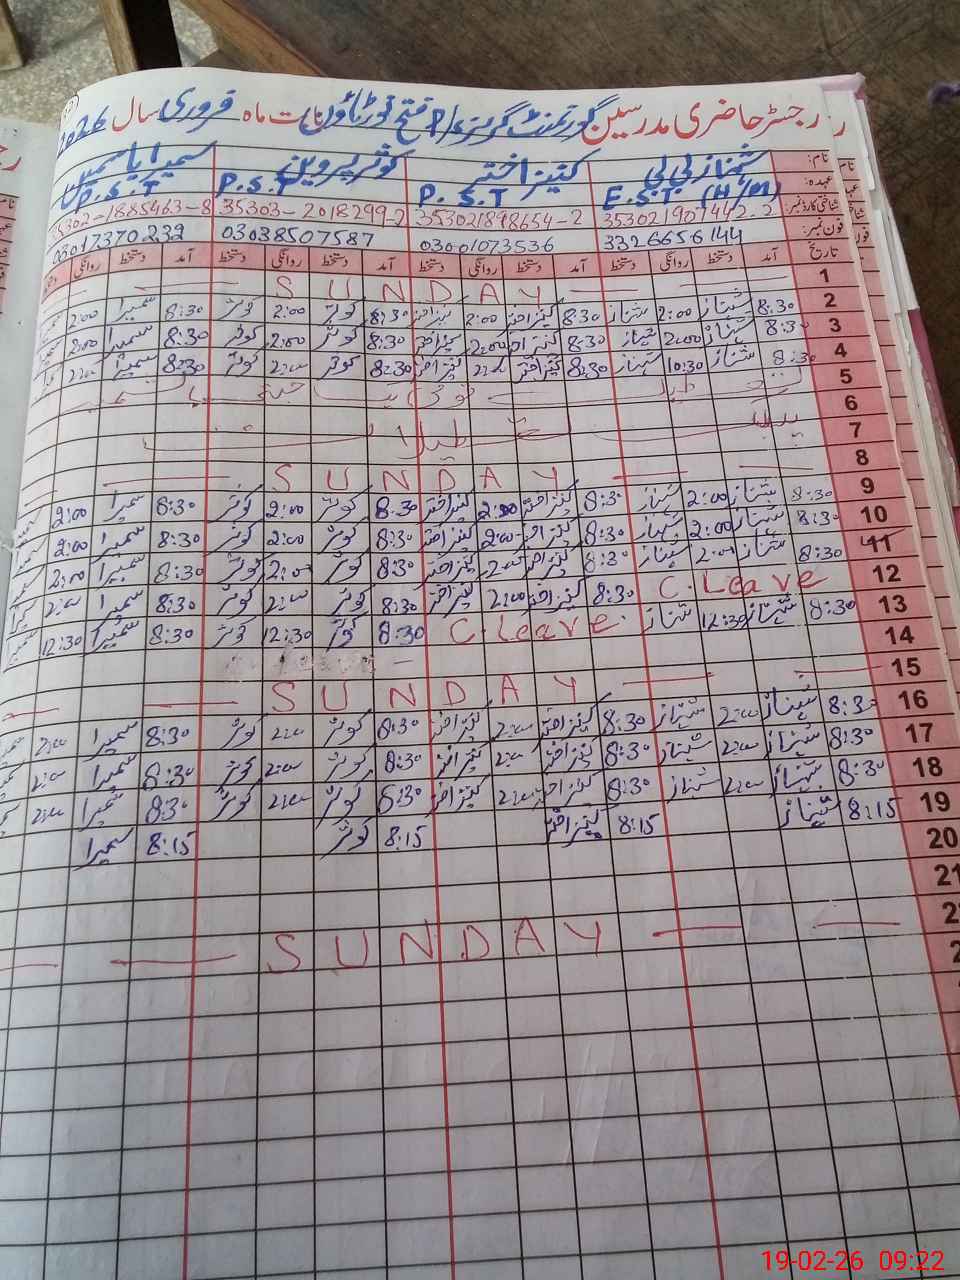 رجسٹر حاضری مدرسین گورنمنٹ گرلز بابت ماہ فروری سال 2026
نام: شہناز بی بی کنیز اختر کوثر پروین سمیرا یاسمین
عہدہ: E.S.T (H/M) P.S.T P.S.T P.S.T
شناختی کارڈ نمبر: 353021898654-2 35303-2018299-2 35302-1885463-8
فون نمبر: 3326656144 03001073536 03038507587 03017370232
تاریخ آمد دستخط روانگی دستخط آمد دستخط روانگی دستخط آمد دستخط روانگی دستخط آمد دستخط روانگی
1 SUNDAY
2 8:30 شہناز 2:00 شہناز 8:30 کنیز اختر 2:00 کنیز اختر 8:30 کوثر 2:00 کوثر 8:30 سمیرا 2:00
3 8:30 شہناز 2:00 شہناز 8:30 کنیز اختر 2:00 کنیز اختر 8:30 کوثر 2:00 کوثر 8:30 سمیرا 2:00
4 8:30 شہناز 10:30 شہناز 8:30 کنیز اختر 2:00 کنیز اختر 8:30 کوثر 2:00 کوثر 8:30 سمیرا 2:00
5
6
7
8 SUNDAY
9 8:30 شہناز 2:00 شہناز 8:30 کنیز اختر 2:00 کنیز اختر 8:30 کوثر 2:00 کوثر 8:30 سمیرا 2:00
10 8:30 شہناز 2:00 شہناز 8:30 کنیز اختر 2:00 کنیز اختر 8:30 کوثر 2:00 کوثر 8:30 سمیرا 2:00
11 8:30 شہناز 2:00 شہناز 8:30 کنیز اختر 2:00 کنیز اختر 8:30 کوثر 2:00 کوثر 8:30 سمیرا 2:00
12 C.Leave 8:30 کنیز اختر 2:00 کنیز اختر 8:30 کوثر 2:00 کوثر 8:30 سمیرا 2:00
13 8:30 شہناز 12:30 شہناز C.Leave 8:30 کوثر 12:30 کوثر 8:30 سمیرا 12:30
14
15 SUNDAY
16 8:30 شہناز 2:00 شہناز 8:30 کنیز اختر 2:00 کنیز اختر 8:30 کوثر 2:00 کوثر 8:30 سمیرا 2:00
17 8:30 شہناز 2:00 شہناز 8:30 کنیز اختر 2:00 کنیز اختر 8:30 کوثر 2:00 کوثر 8:30 سمیرا 2:00
18 8:30 شہناز 2:00 شہناز 8:30 کنیز اختر 2:00 کنیز اختر 8:30 کوثر 2:00 کوثر 8:30 سمیرا 2:00
19 8:15 شہناز 8:15 کنیز اختر 8:15 کوثر 8:15 سمیرا
20
21
SUNDAY
19-02-26 09:22